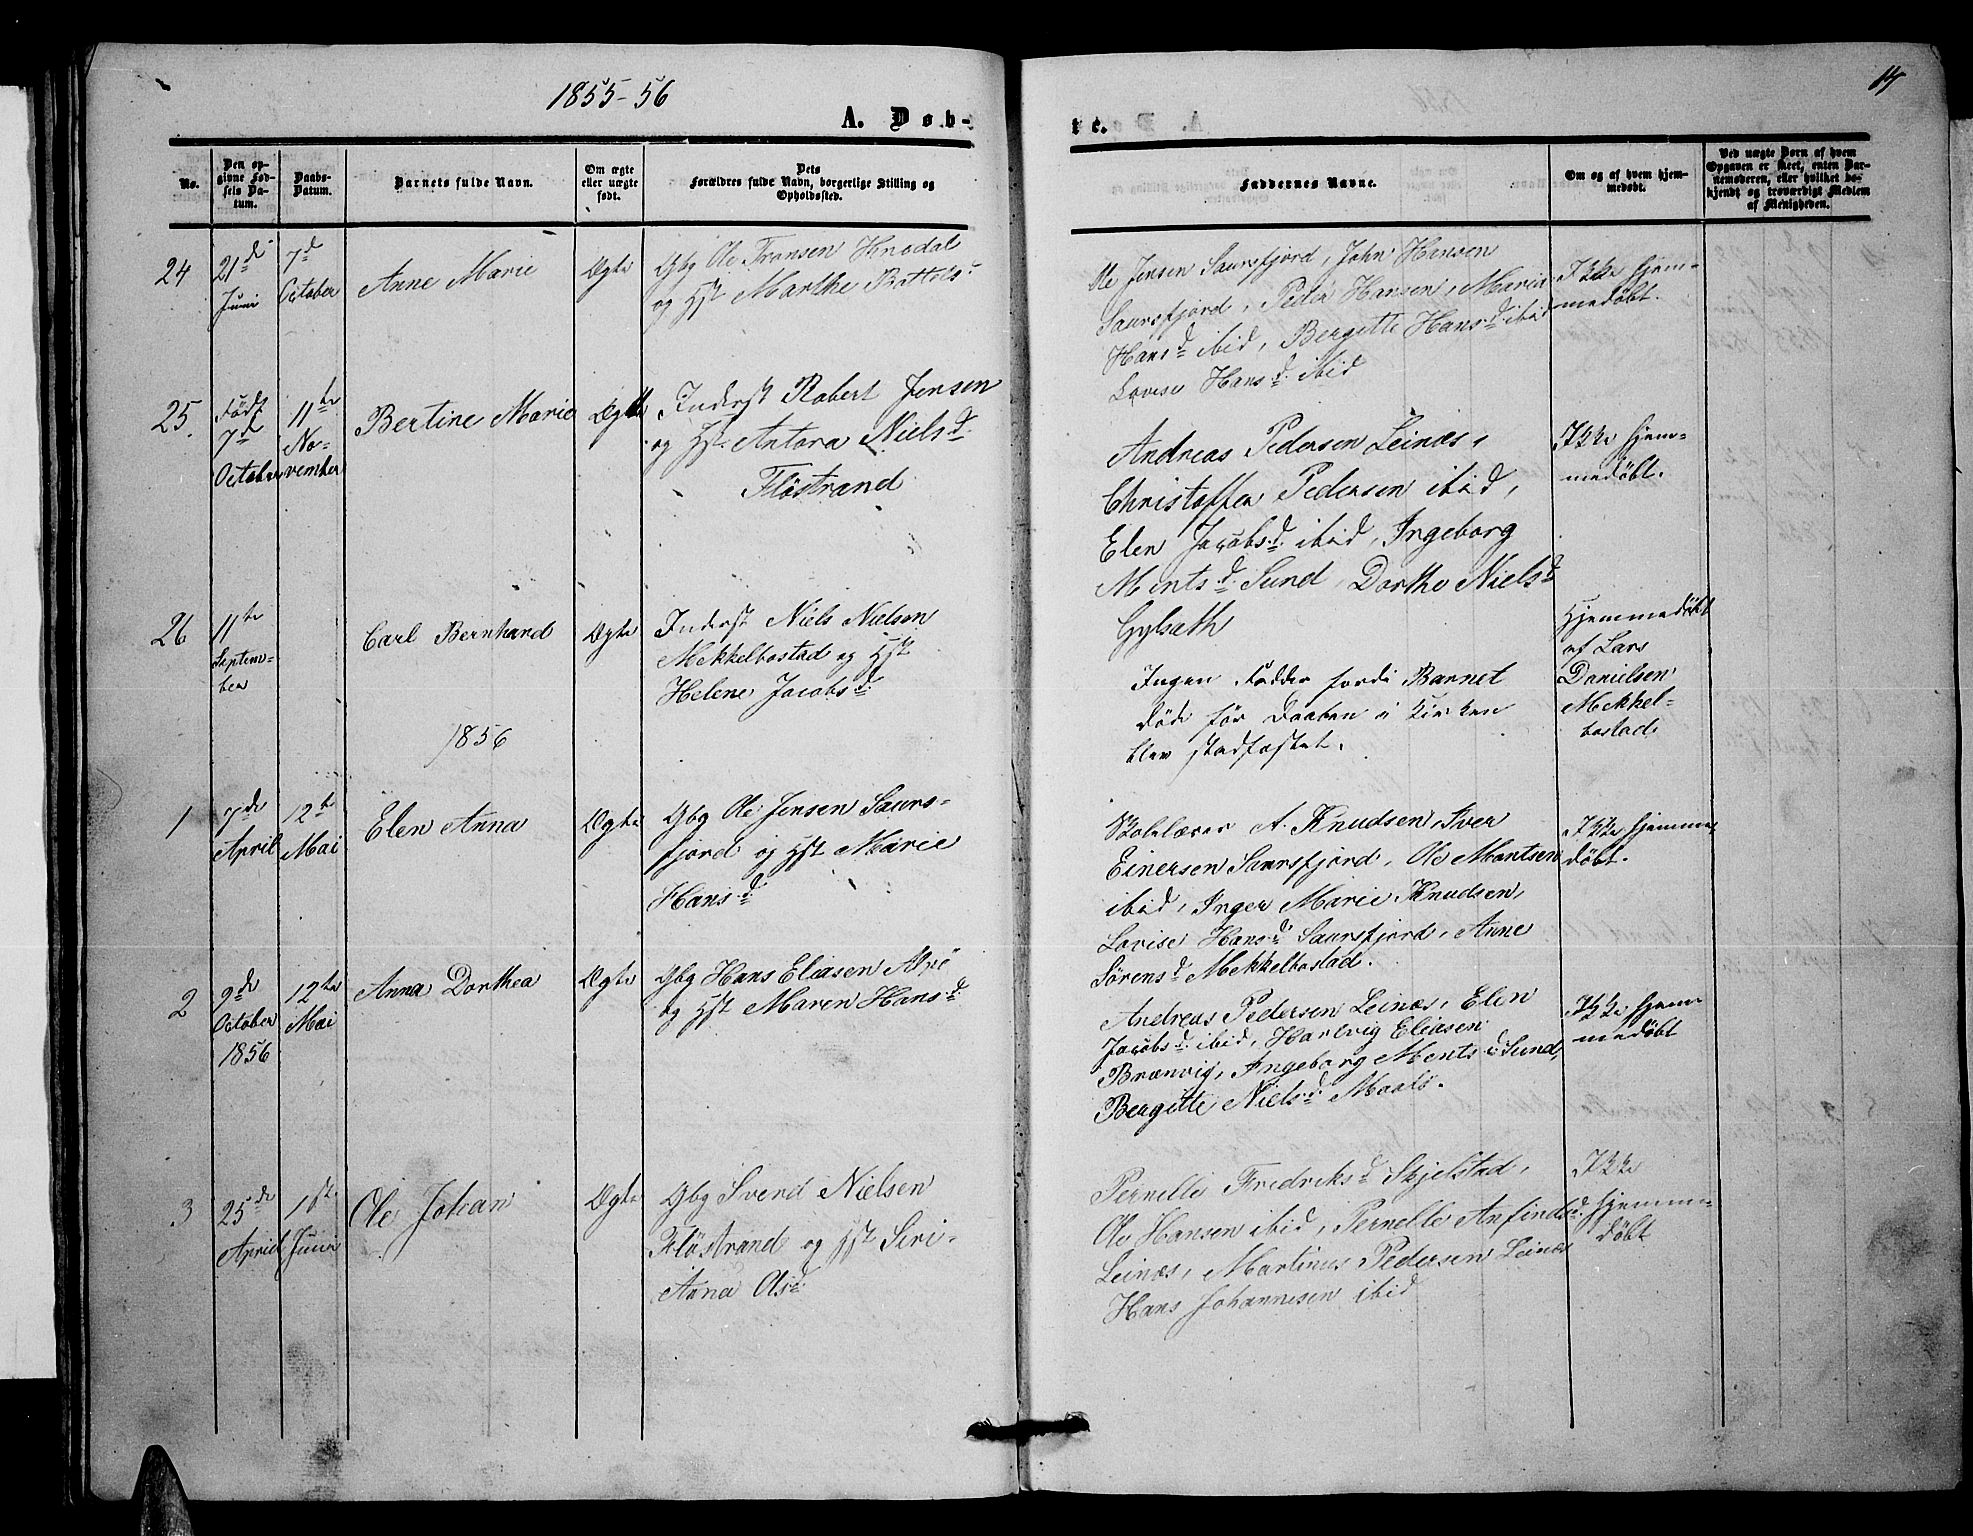 1855-56
14
A. Døb-
te.
No.
Den op-
givne Fød-
sels Da-
tum.
Daabs-
Datum.
Barnets fulde Navn.
Om ægte
eller uægte
født.
Dets
Forældres fulde Navn, borgerlige Stilling og
Opholdssted.
Faddernes Navne.
Om og af hvem hjem-
medøbt.
Ved uægte Børn af hvem
Opgaven er skeet, enten Bar-
nemoderen, eller hvilket be-
kjendt og troværdigt Medlem
af Menigheden.
24
21de
Juni
7d
October
Anne Marie
Ægte
Gbg Ole Fransen
og Hst Marthe
Ole Jensen Saursfjord, John Hansen
Saursfjord, Peder Hansen, Marie
Hansd ibid, Bergitte Hansd ibid
Lovise Hansd ibid
Ikke hjem-
medøbt.
25.
Født
7d
October
11te
No-
vember
Bertine Marie
Ægte
Inderst Robert Jensen
og Hst Antora Nielsd
Flostrand
Andreas Pedersen Leinæs,
Christoffer Pedersen ibid,
Elen Jacobsd ibid, Ingeborg
Mentsd Sund, Dorthe Nielsd
Ikke hjem-
medøbt.
26
11te
Septem-
ber
Carl Bernhard
Ægte
Inderst Niels Nielsen
Mekkelbostad og Hst
Helene Jacobsd
Ingen Fadder fordi Barnet
døde før Daaben i Kirken
blev stadfæstet.
Hjemmedøbt
af Lars
Danielsen
Mekkel-
bostad
1856
1
7de
April
12te
Mai
Elen Anna
Ægte
Gbg Ole Jensen Saurs-
fjord og Hst Marie
Hansd
Skolelærer A. Knudsen, Iver
Einersen Saursfjord, Ole Mantsen
ibid, Inger Marie Knudsen,
Lovise Hansd Saursfjord, Anne
Sørensd Mekkelbostad.
Ikke hjemme-
døbt.
2
9de
October
1856
12te
Mai
Anna Dorthea
Ægte
Gbg Hans Eliasen
og Hst Maren Hansd
Andreas Pedersen Leinæs, Elen
Jacobsd ibid, Hartvig Eliasen
Brænvig, Ingeborg Mentsd Sund,
Bergitte Nielsd
Ikke hjem-
medøbt
3
25de
April
1ste
Juni
Ole Johan
Ægte
Gbg Svend Nielsen
Flostrand og Hst Siri-
Anna Olsd
Pernelle Fredriksd Skjelstad,
Ole Hansen ibid, Pernelle Anfindsd
Leinæs, Martinus Pedersen Leinæs
Hans Johannesen ibid
Ikke
hjemme-
døbt